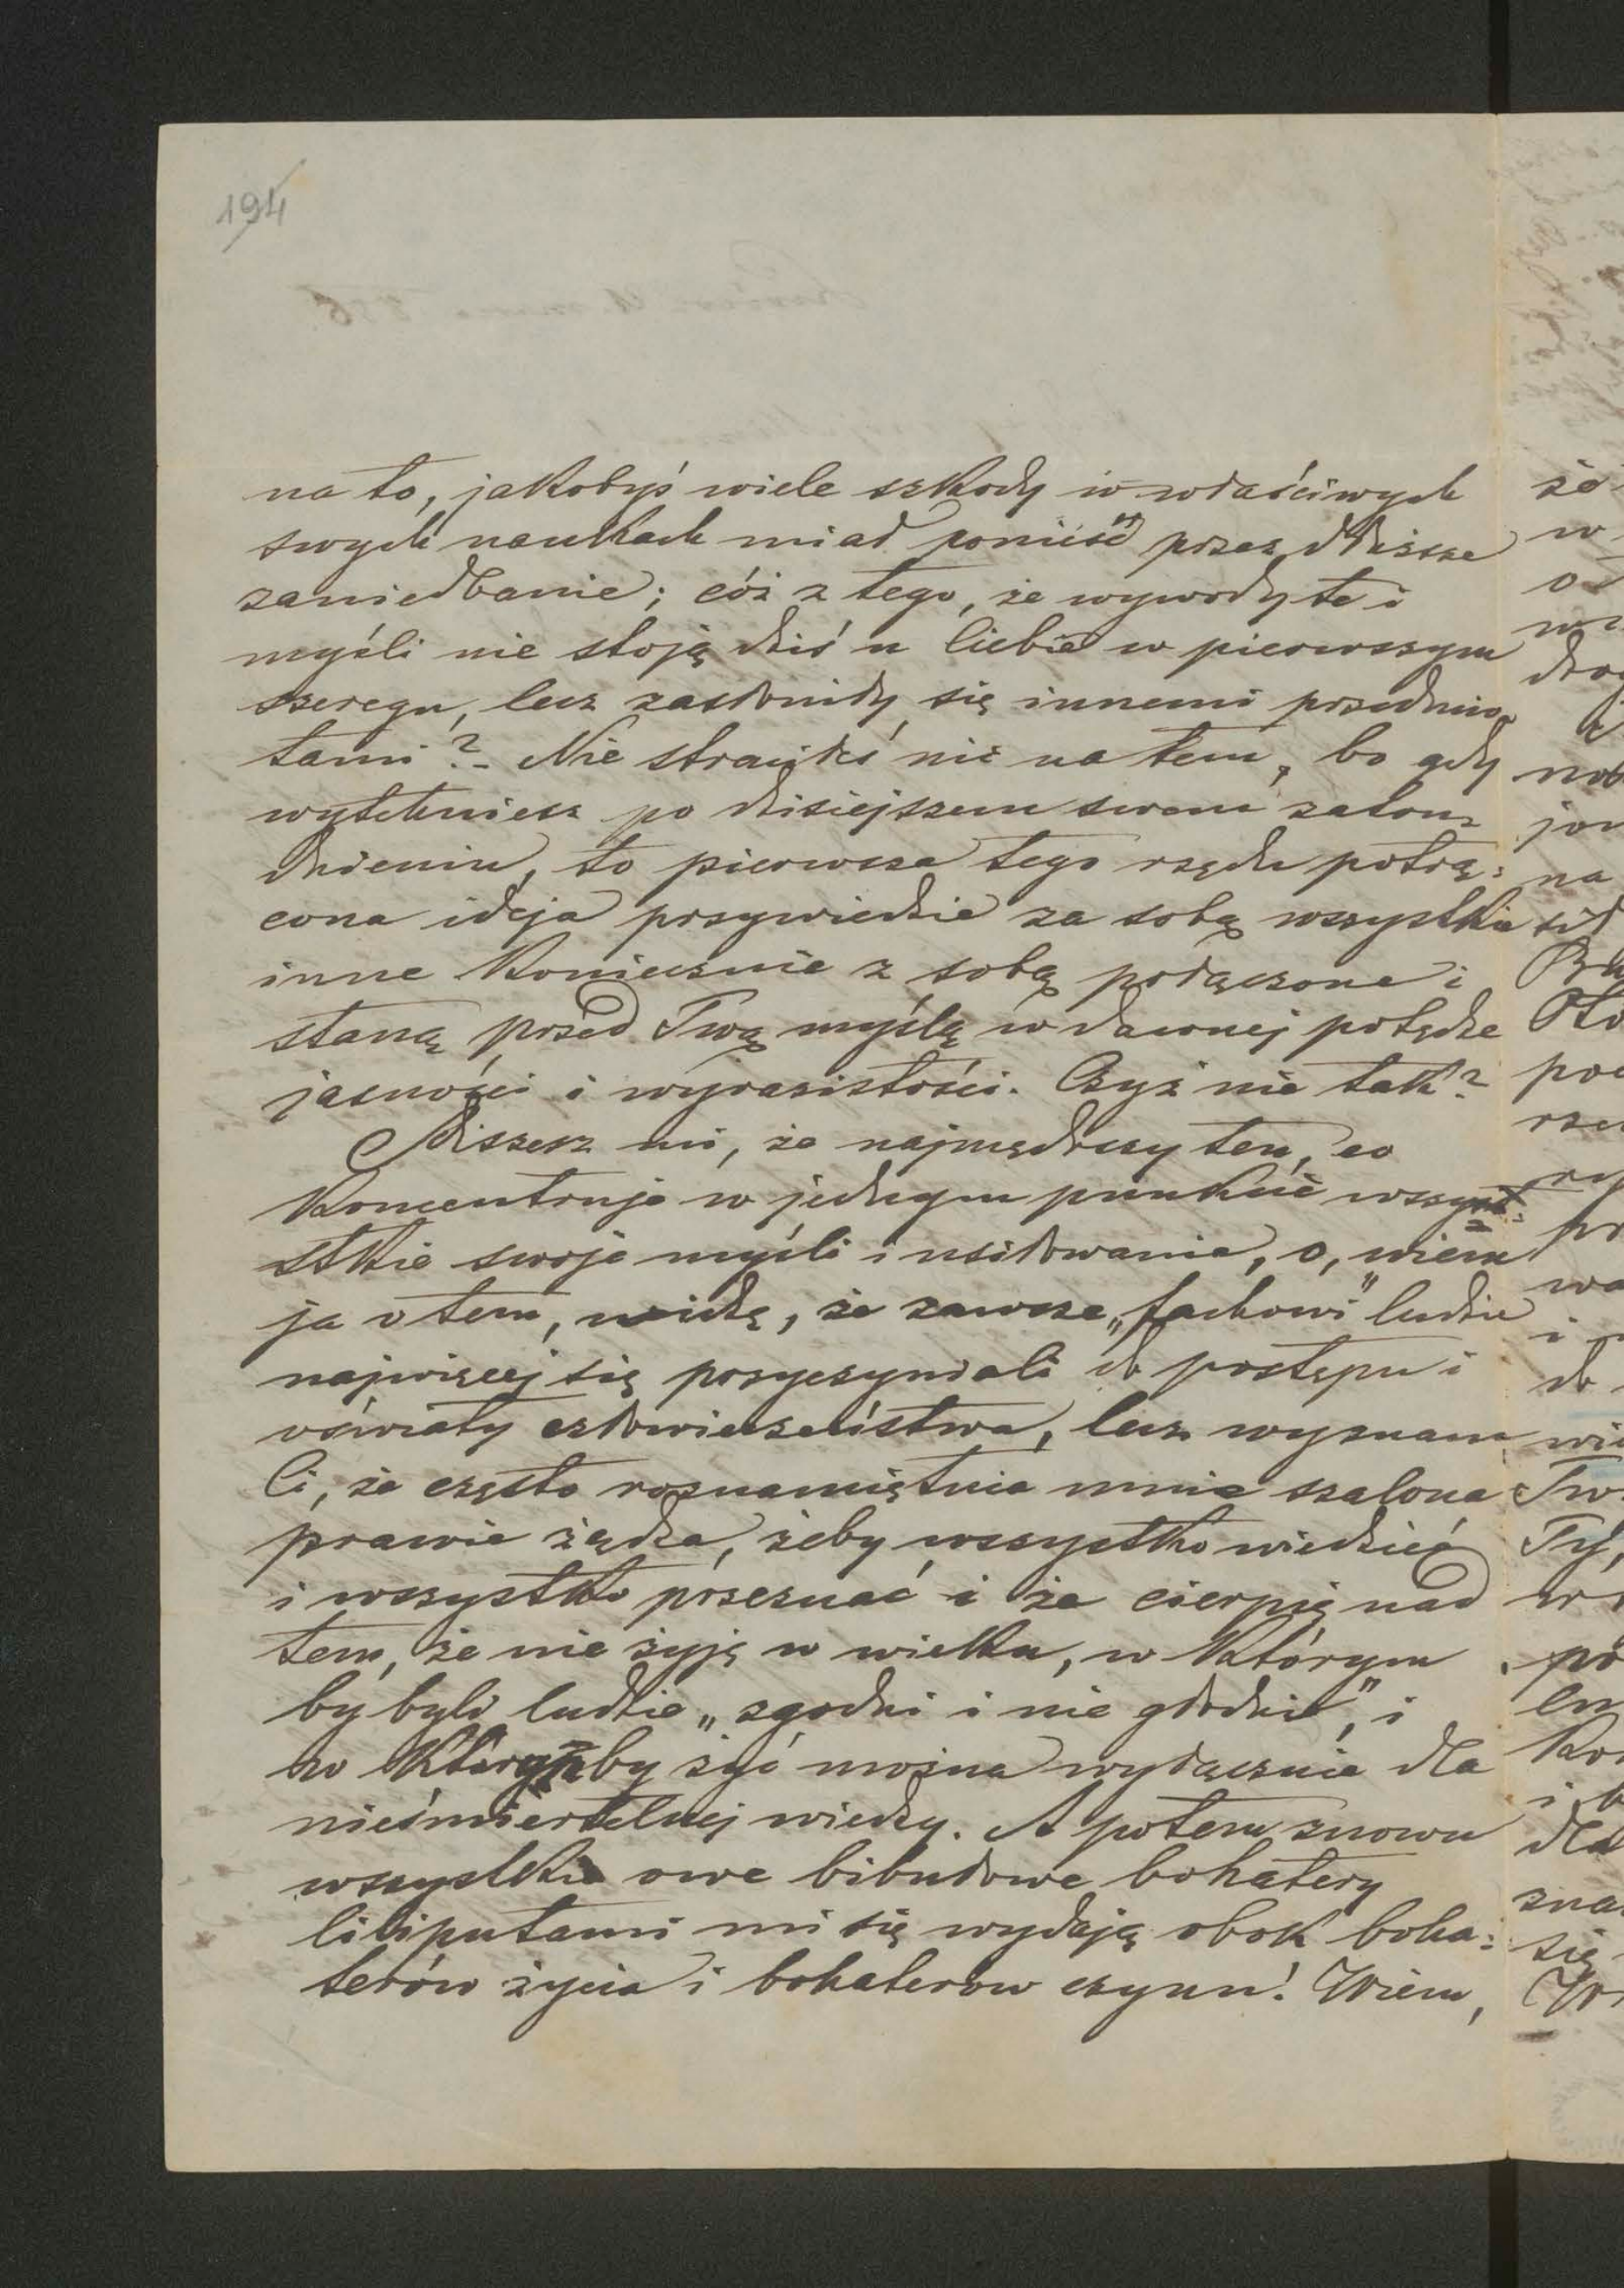 194
na to, jakobyś wiele szkody w właściwych
swych naukach miał ponieść przez dłuższe
zaniedbanie; cóż z tego, że wywody te i
myśli nie stoją dziś u Ciebie w pierwszym
szeregu, lecz zasłoniły się innemi przedmio-
tami? - Nie straciłeś nic na tem, bo gdy
wytchniesz po dzisiejszem swem zatru-
dnieniu, to pierwsza tego rzędu potrą-
cona ideja przywiedzie za sobą wszystkie
inne koniecznie z sobą połączone i
staną przed Twą myślą w dawnej potędze
jasności i wyrazistości. Czyż nie tak?
Piszesz mi, że najmędrszy ten, co
koncentruje w jednym punkcie wszy-
stkie swoje myśli i usiłowania, o, wiem
ja o tem, widzę, że zawsze „fachowi" ludzie
najwięcej się przyczyniali do postępu i
oświaty człowieczeństwa, lecz wyznam
Ci, że często roznamiętnia mnie szalona
prawie żądza, żeby wszystko wiedzieć
i wszystko przeznać i że cierpię nad
tem, że nie żyję w wieku, w którym
by byli ludzie „zgodni i nie głodni", i
w którymby żyć można wyłącznie dla
nieśmiertelnej wiedzy. A potem znowu
wszystkie owe bibułowe bohatery
liliputami mi się wydają obok boha-
terów życia i bohaterów czynu! Wiem,